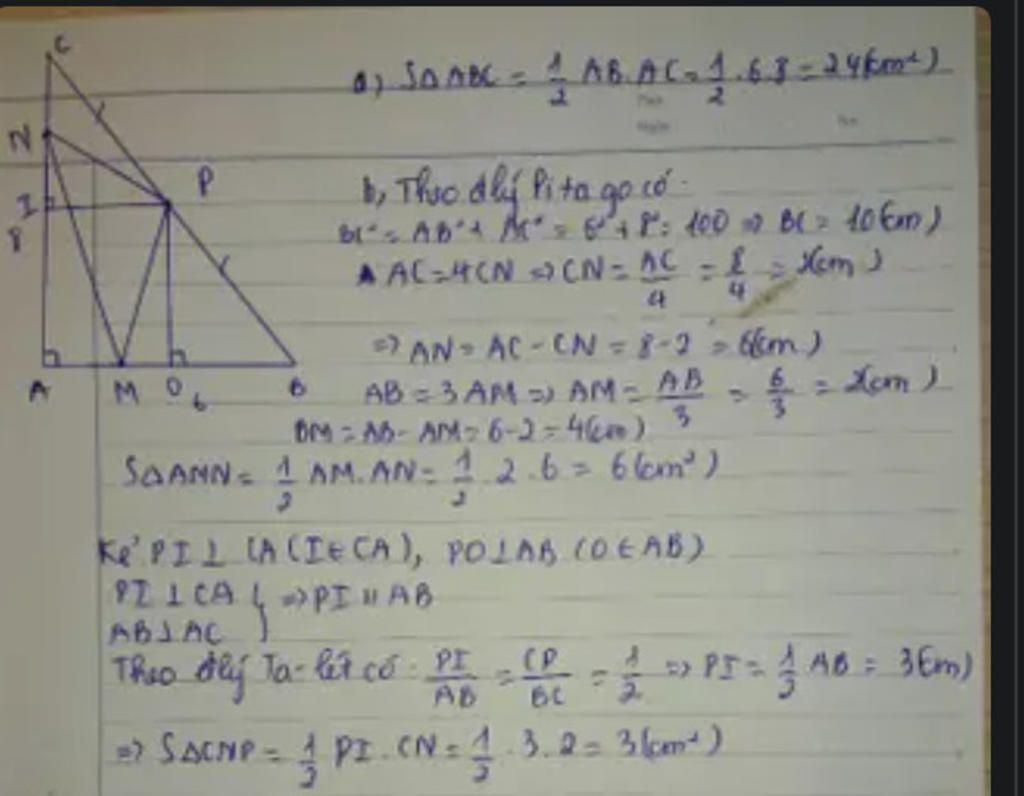 C
N
I
8
P
A
M
O
6
B
a) SΔABC = 1/2 AB.AC = 1/2 . 6.8 = 24(cm²)
b, Theo đlý Pitago có:
BC² = AB² + AC² = 6² + 8² = 100 => BC = 10(cm)
AC = 4CN => CN = AC/4 = 8/4 = 2(cm)
=> AN = AC - CN = 8 - 2 = 6(cm)
AB = 3AM => AM = AB/3 = 6/3 = 2(cm)
BM = AB - AM = 6 - 2 = 4(cm)
SΔAMN = 1/2 AM.AN = 1/2 . 2 . 6 = 6(cm²)
Kẻ PI ⊥ CA (I ∈ CA), PO ⊥ AB (O ∈ AB)
PI ⊥ CA } => PI // AB
AB ⊥ AC
Theo đlý Ta-lét có: PI/AB = CP/BC = 1/2 => PI = 1/2 AB = 3(cm)
=> SΔCNP = 1/2 PI . CN = 1/2 . 3 . 2 = 3(cm²)